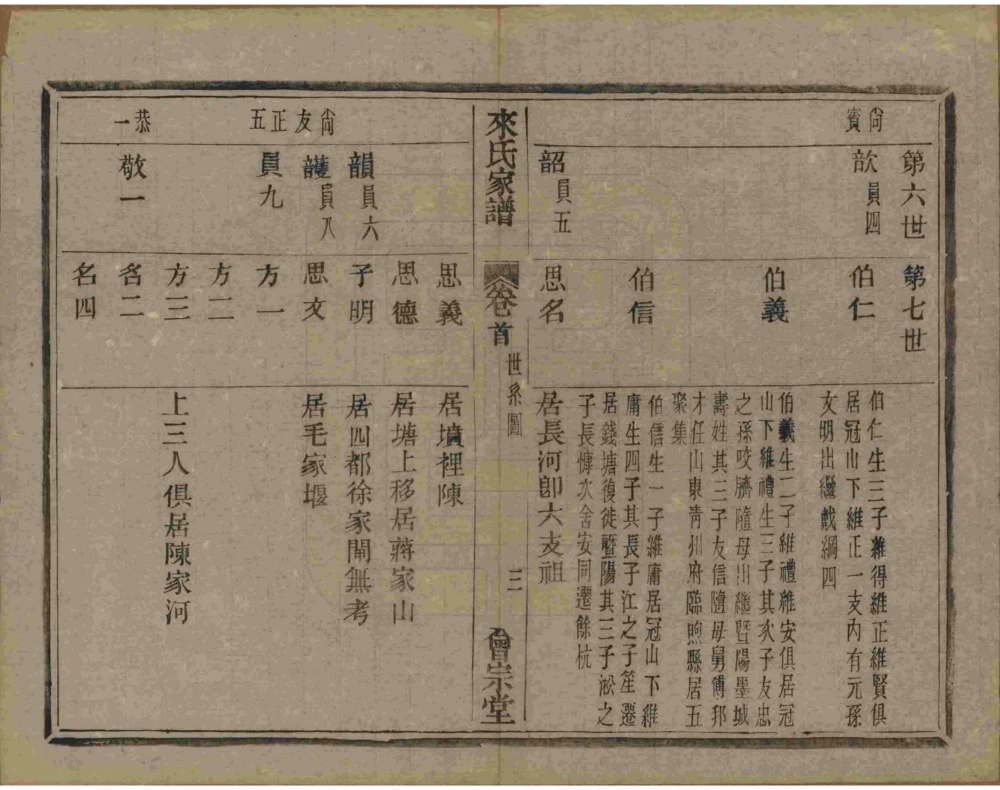 第六世
第七世
尚賓
歆員四
伯仁
伯仁生三子維得維正維賢俱
居冠山下維正一支內有元孫
文明出繼戴綱四
伯義
伯義生二子維禮維安俱居冠
山下維禮生三子其次子友忠
之孫咬臍隨母出繼暨陽墨城
壽姓其三子友信隨母舅傅邦
才任山東青州府臨煦縣居五
聚集
伯信
伯信生一子維庸居冠山下維
庸生四子其長子江之子笙遷
居錢塘復徙暨陽其三子淞之
子長慷次舍安同遷餘杭
韶員五
思名
居長河卽六支祖
來氏家譜
卷首
世系圖
三
會宗堂
思義
居墳裡陳
思德
居塘上移居蔣家山
尚友正五
韻員六
子明
居四都徐家閘無考
護員八
思文
居毛家堰
員九
方一
方二
方三
上三人俱居陳家河
恭一
敬一
名二
名四